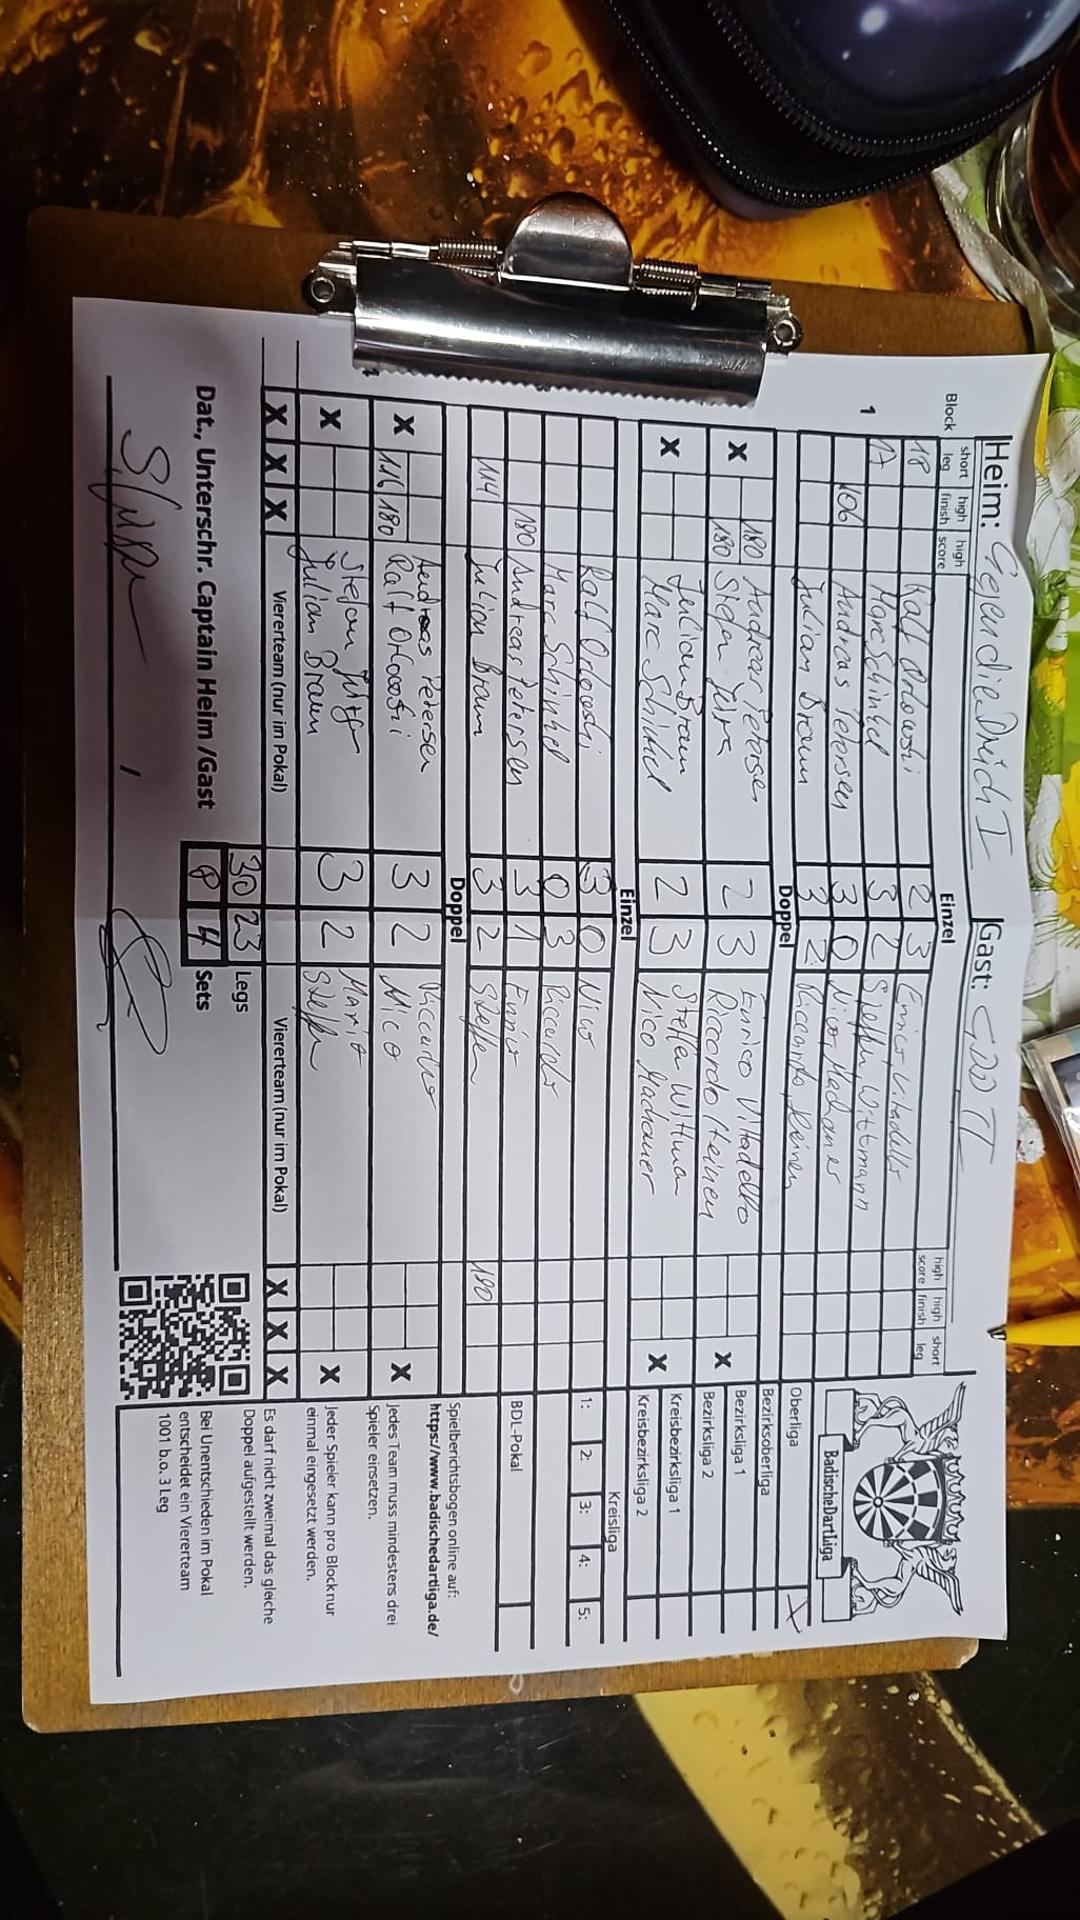 Heim: GegendieDrich I Gast: GDD II
Block short leg high finish high score Einzel high score high finish short leg
1
18 Ralf Orlowski 2 3 Enrico Vitadello
17 Marc Schinkel 3 2 Steffen Wittmann
106 Andreas Petersen 3 0 Nico Machauer
Julian Braun 3 2 Riccardo Heinen
Doppel
X 180 Andreas Petersen 2 3 Enrico Vitadello X
180 Stefan Riccardo Heinen
X Julian Braun 2 3 Steffen Wittman X
Marc Schinkel Nico Machauer
Einzel
Ralf Orlowski 3 0 Nico
Marc Schinkel 0 3 Riccardo
180 Andreas Petersen 3 1 Enrico
114 Julian Braun 3 2 Steffen 180
Doppel
X Andreas Petersen 3 2 Riccardo X
116 180 Ralf Orlowski Nico
X Stefan 3 2 Mario X
Julian Braun Steffen
X X X Viererteam (nur im Pokal) Viererteam (nur im Pokal) X X X
30 23 Legs
8 4 Sets
Dat., Unterschr. Captain Heim /Gast
BadischeDartLiga
Oberliga X
Bezirksoberliga
Bezirksliga 1
Bezirksliga 2
Kreisbezirksliga 1
Kreisbezirksliga 2
Kreisliga
1: 2: 3: 4: 5:
BDL-Pokal
Spielberichtsbogen online auf:
https://www.badischedartliga.de/
Jedes Team muss mindesters drei
Spieler einsetzen.
Jeder Spieler kann pro Block nur
einmal eingesetzt werden.
Es darf nicht zweimal das gleiche
Doppel aufgestellt werden.
Bei Unentschieden im Pokal
entscheidet ein Viererteam
1001 b.o. 3 Leg